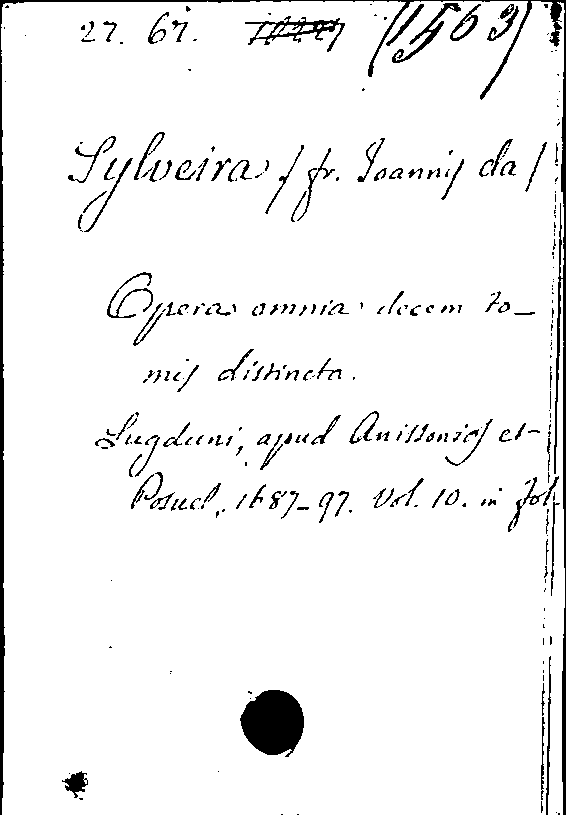 27. 67. (1563)
Sylveira / fr. Joannis da /
Opera omnia decem to-
mis distincta.
Lugduni, apud Anissonios et
Posuel, 1687-97. Vol. 10. in fol.